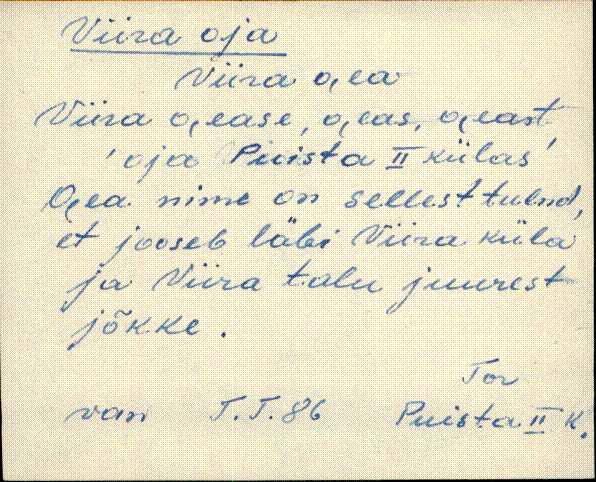 Viira oja
Viira o̭ea
Viira o̭ease, o̭eas, o̭east,
'oja Puista II külas'
O̭ea nime on sellest tulnd,
et jooseb läbi Viira küla
ja Viira talu juurest
jõkke.
Tor
van T.T. 86 Puista II k.